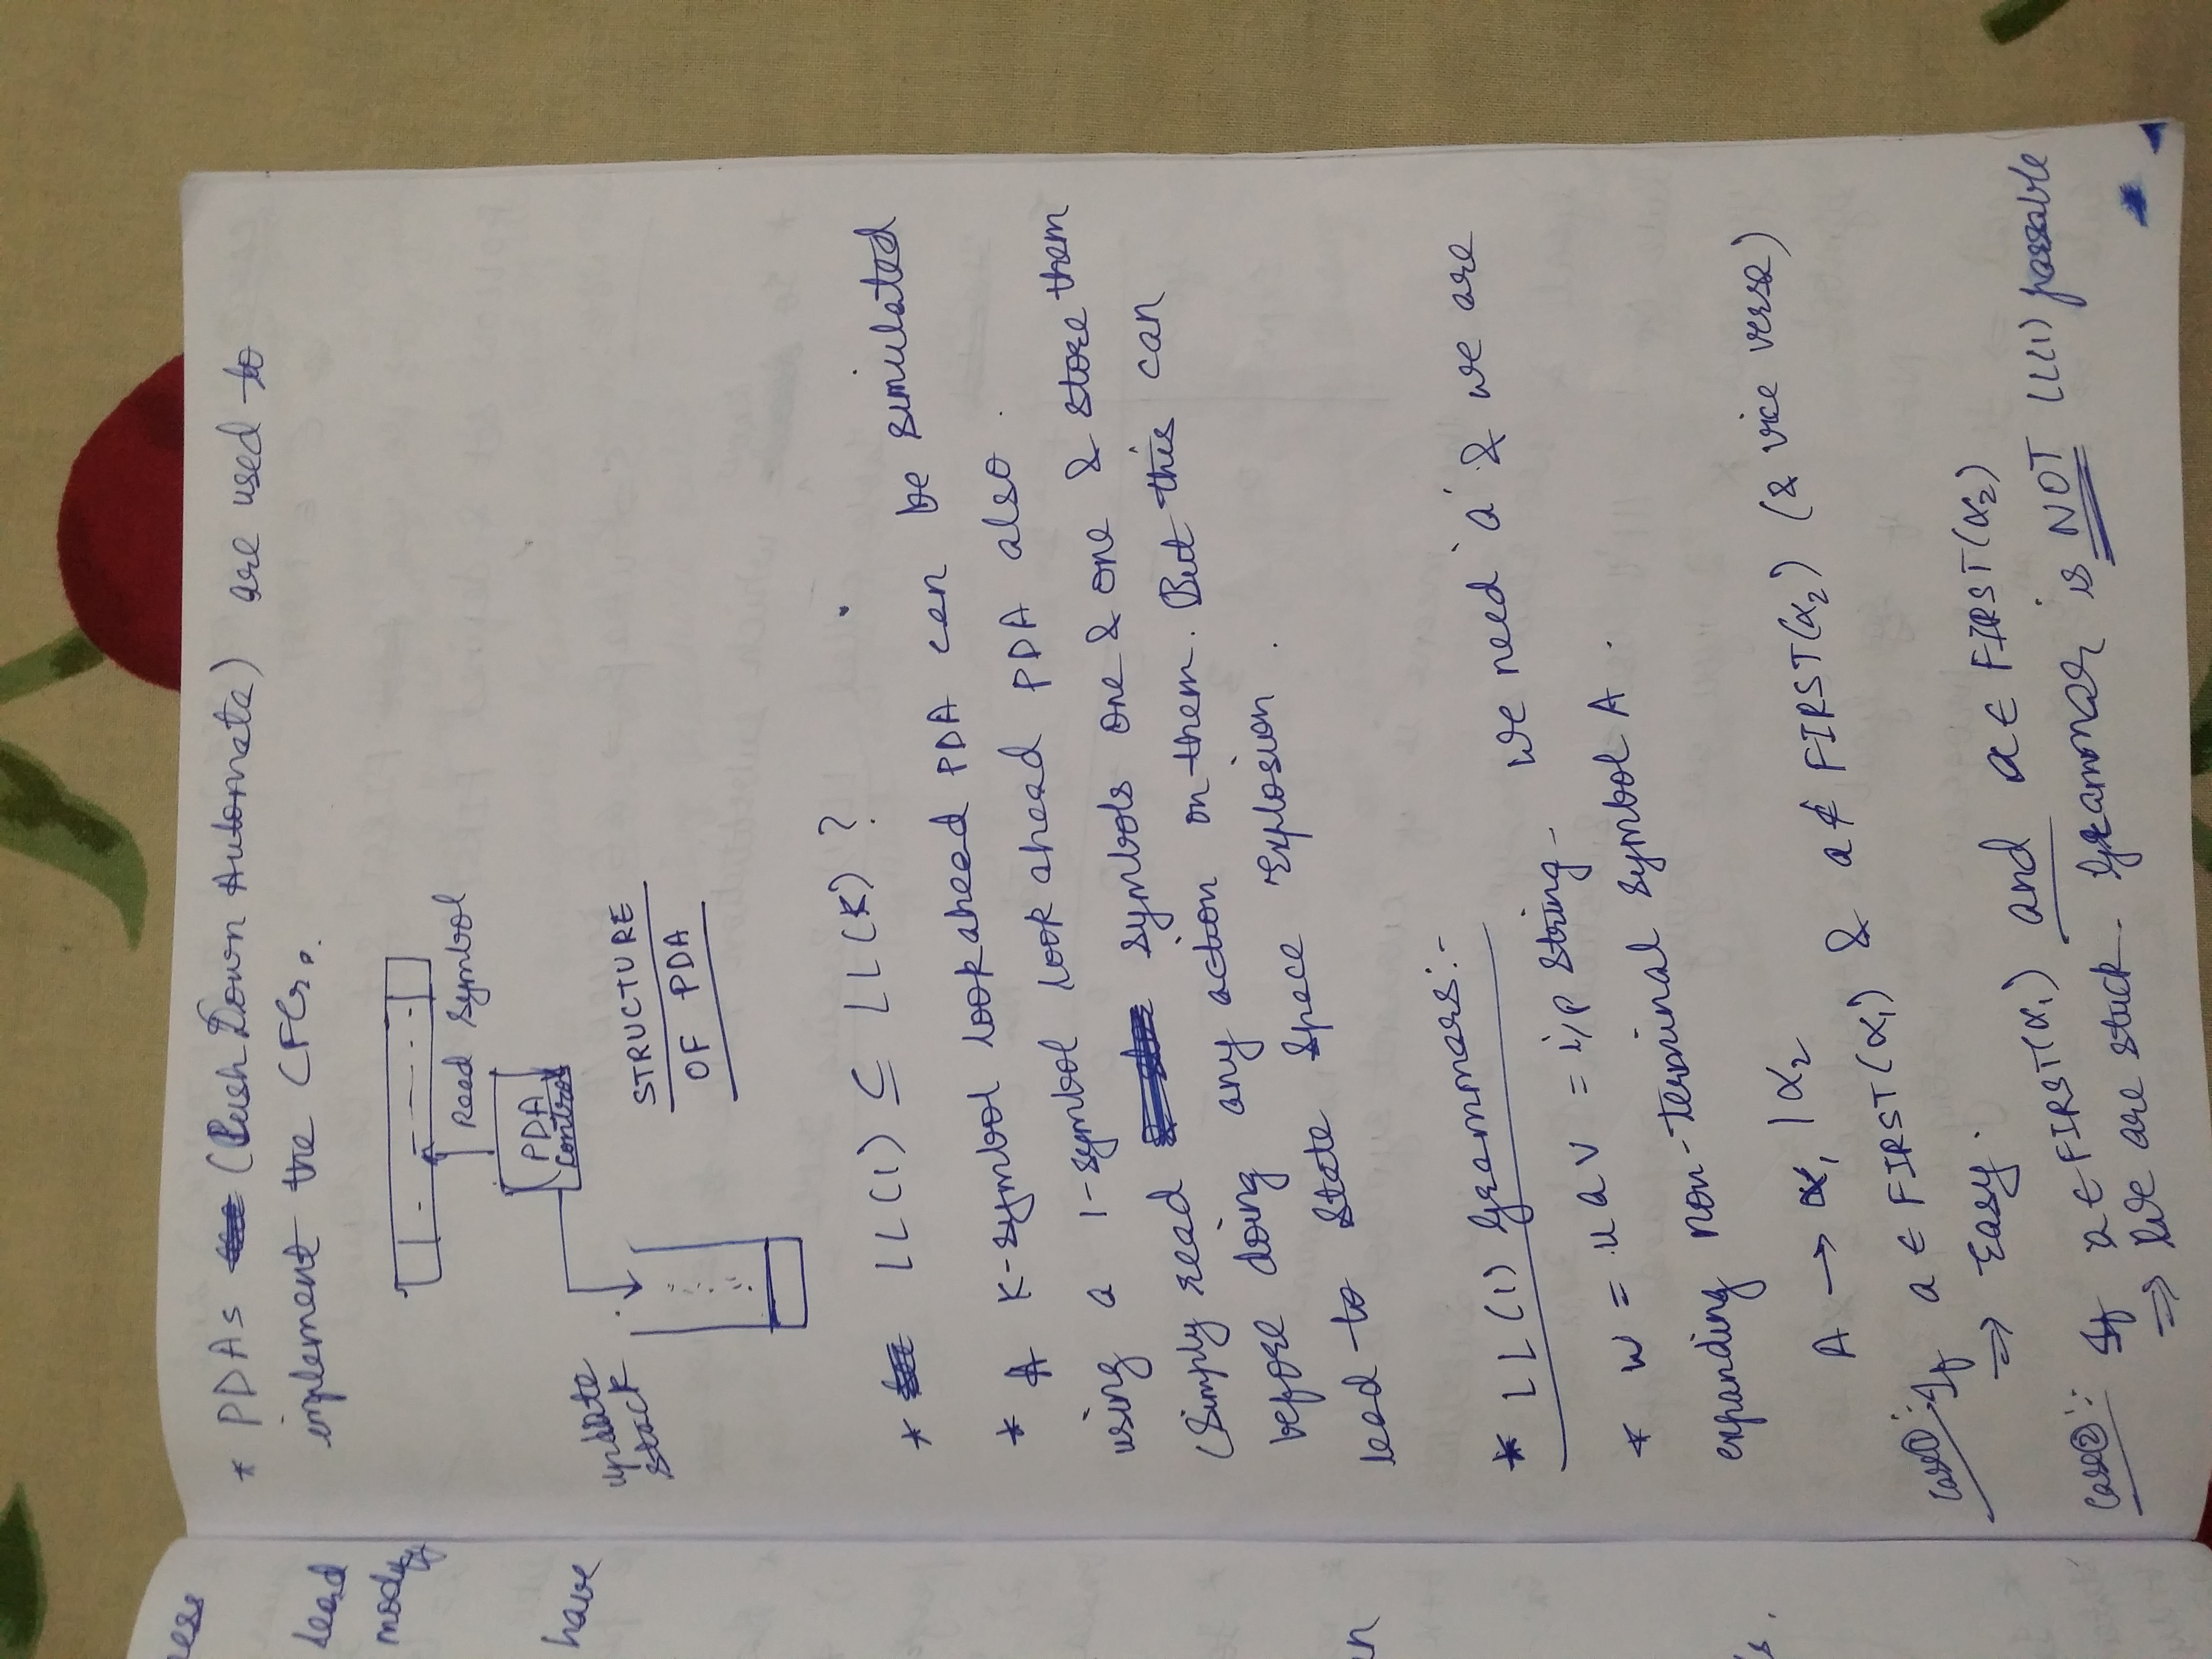 * PDAs (Push Down Automata) are used to
implement the CFGs.
Read Symbol
PDA
Control
update
stack
STRUCTURE
OF PDA
* LL(1) ⊆ LL(K) ?
* A K-symbol look ahead PDA can be simulated
using a 1-symbol look ahead PDA also.
(Simply read symbols one & one & store them
before doing any action on them. But this can
lead to State Space Explosion.
* LL(1) Grammars:-
* w = u a v = i/p string - we need 'a' & we are
expanding non-terminal symbol A.
A → α₁ | α₂
Case①:- If a ∈ FIRST(α₁) & a ∉ FIRST(α₂) (& vice versa)
⇒ Easy.
Case②:- If a ∈ FIRST(α₁) and a ∈ FIRST(α₂)
⇒ We are stuck. Grammar is NOT LL(1) parsable
lead
modify
have